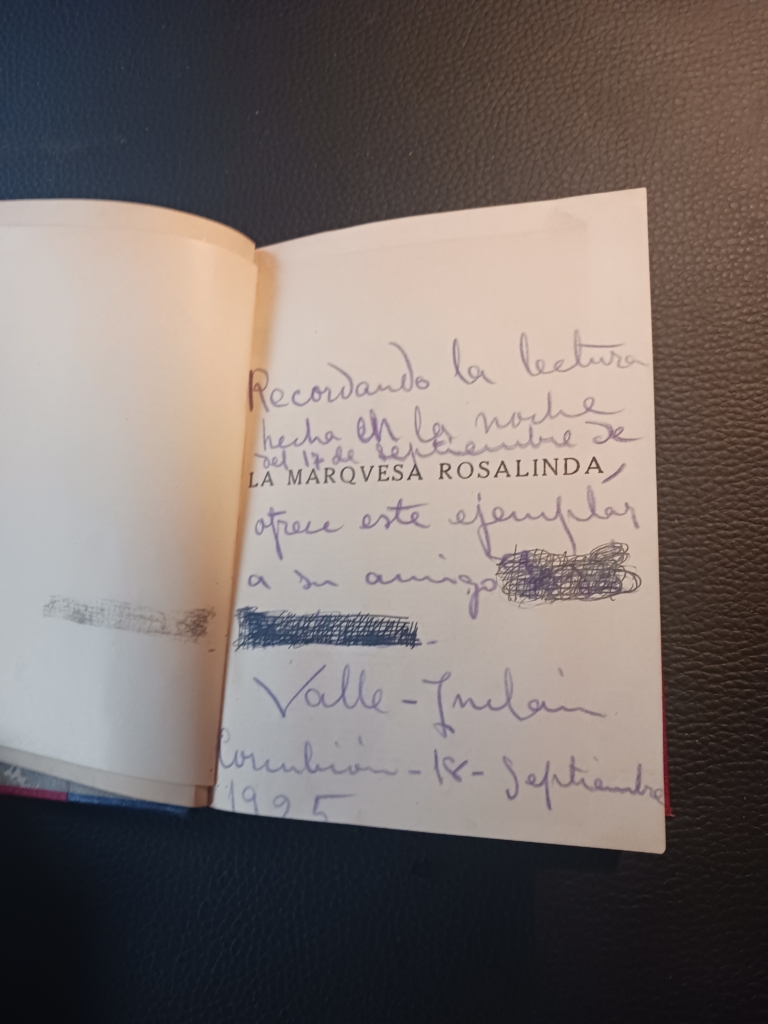 Recordando la lectura
hecha en la noche
del 17 de septiembre de
LA MARQVESA ROSALINDA
ofrece este ejemplar
a su amigo
Valle-Inclán
Corcubión-18-Septiembre
1925